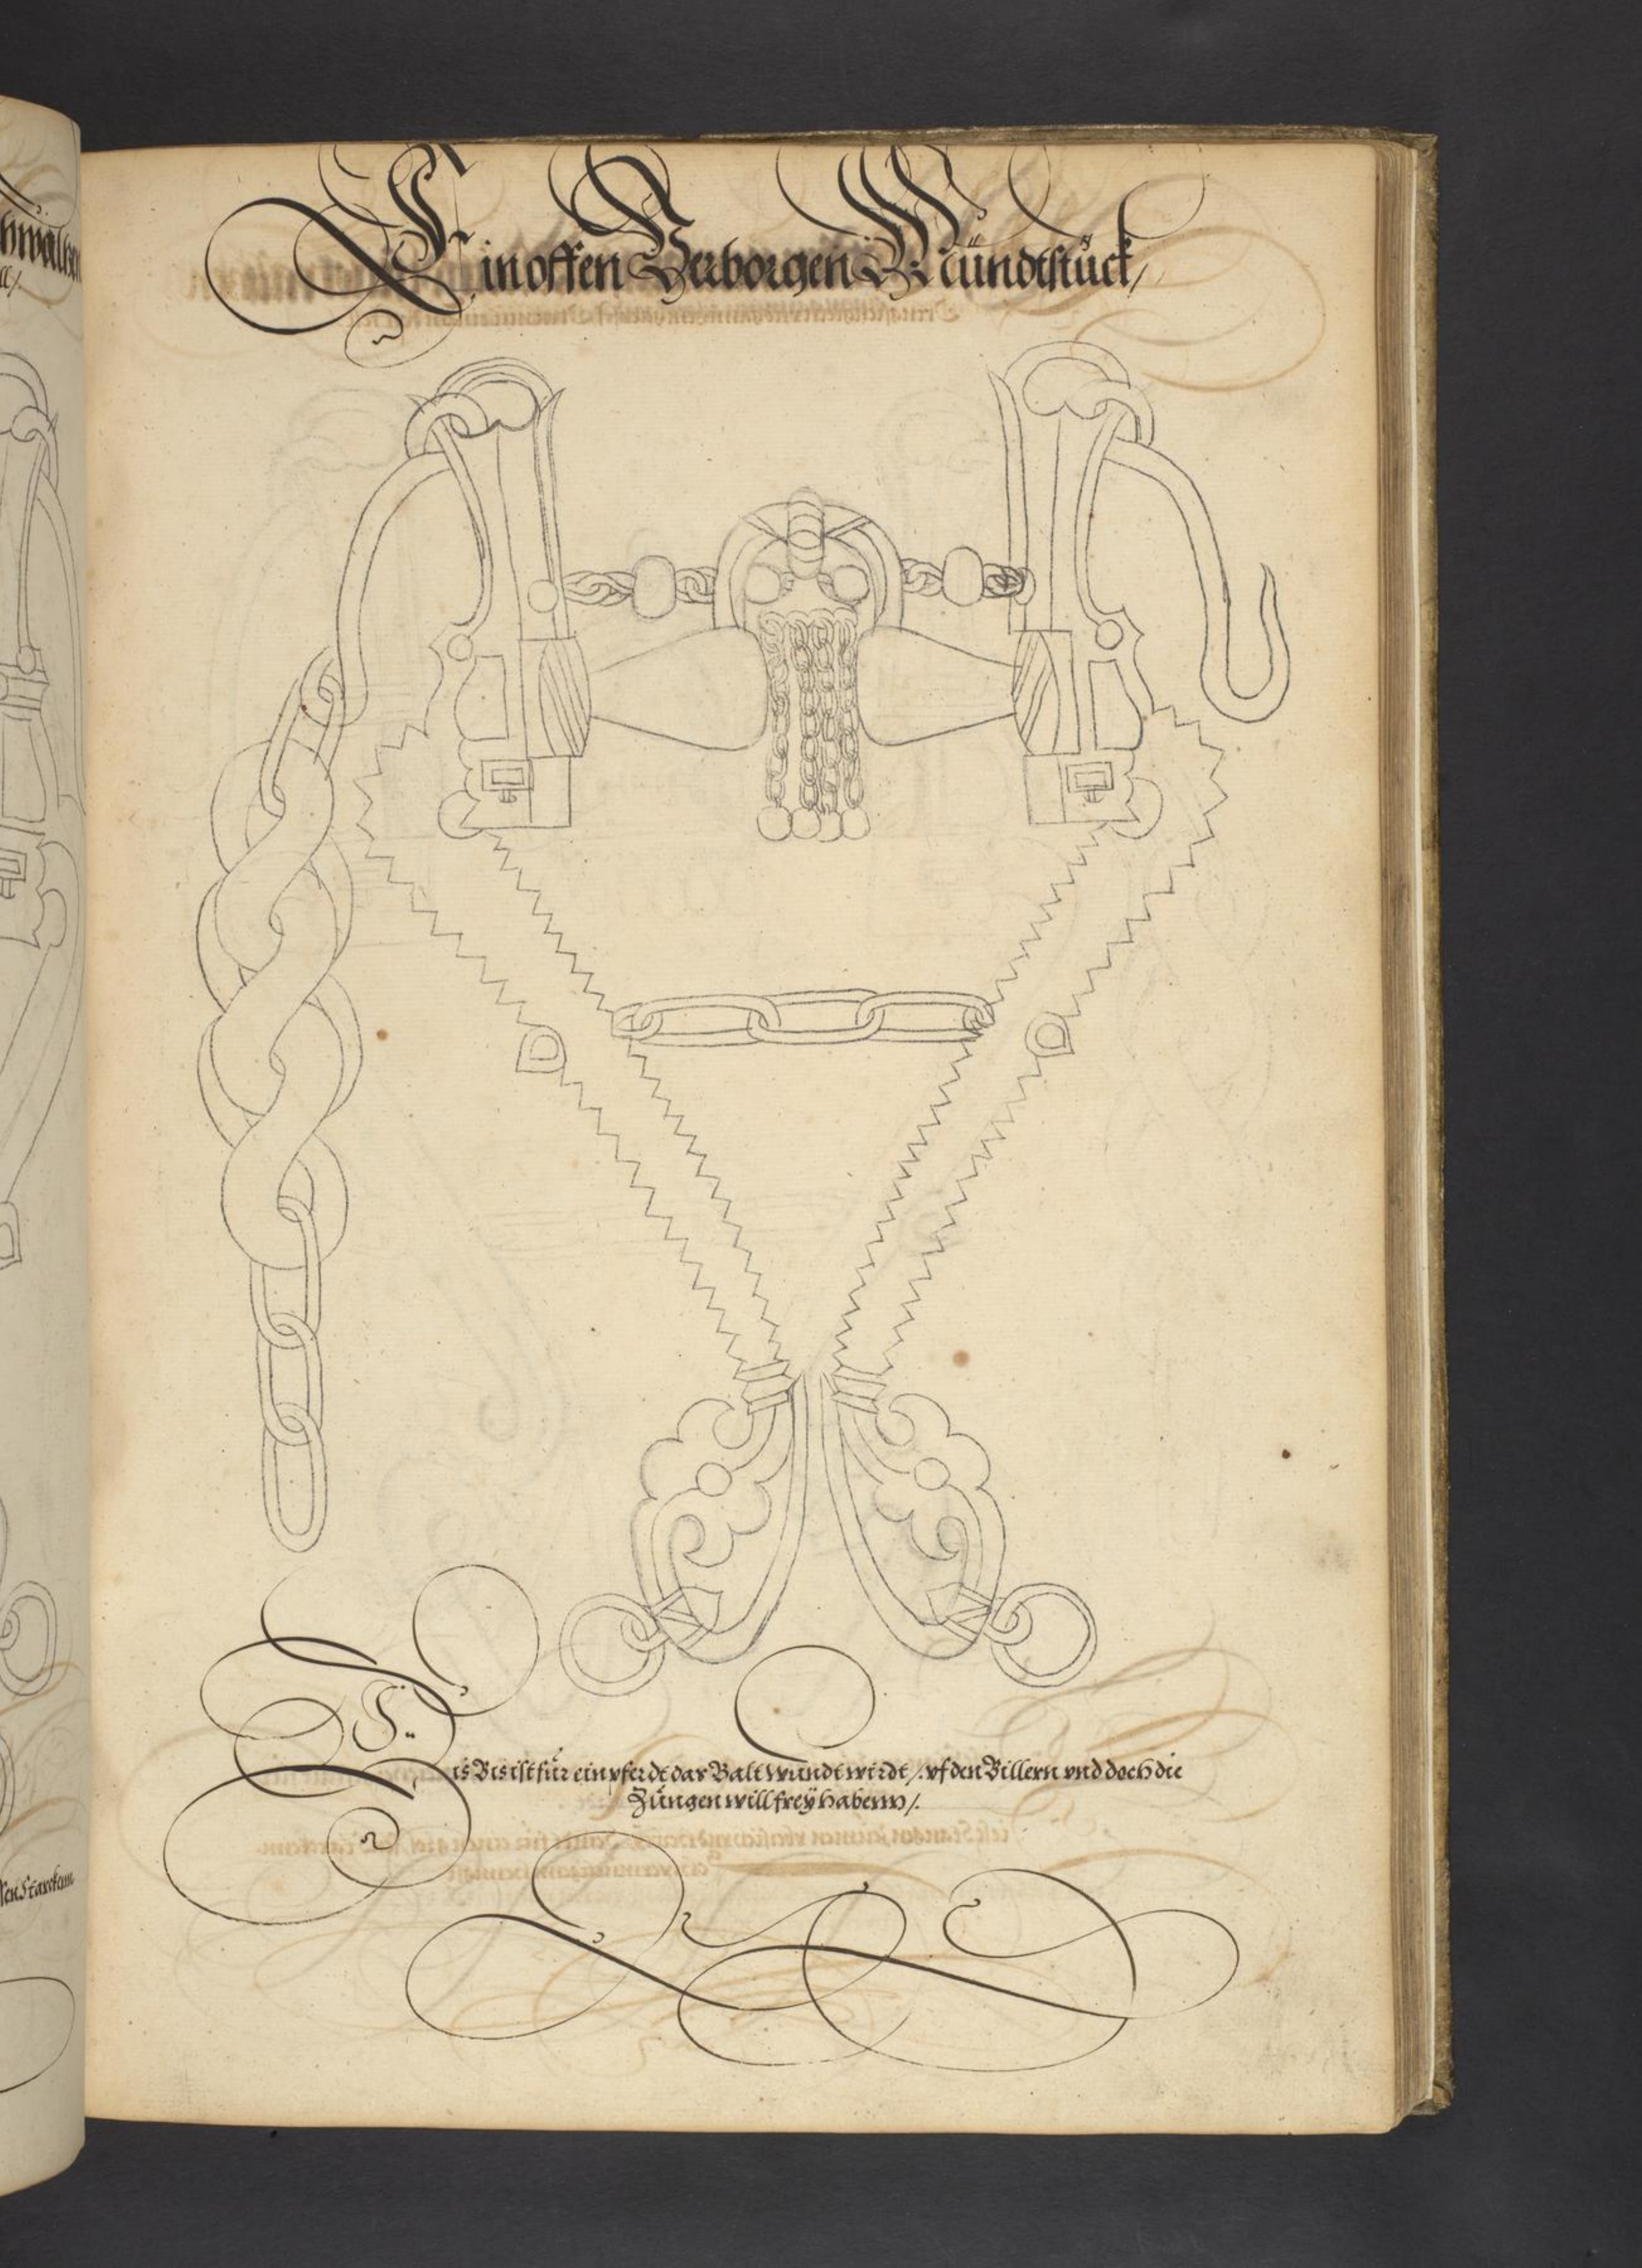 Ein offen Verborgen Mündtstück/
Dis Bis ist für ein pferdt dar Balt wundt wirdt /. vf den Billern vnd doch die
Züngen will freÿ habenn /.